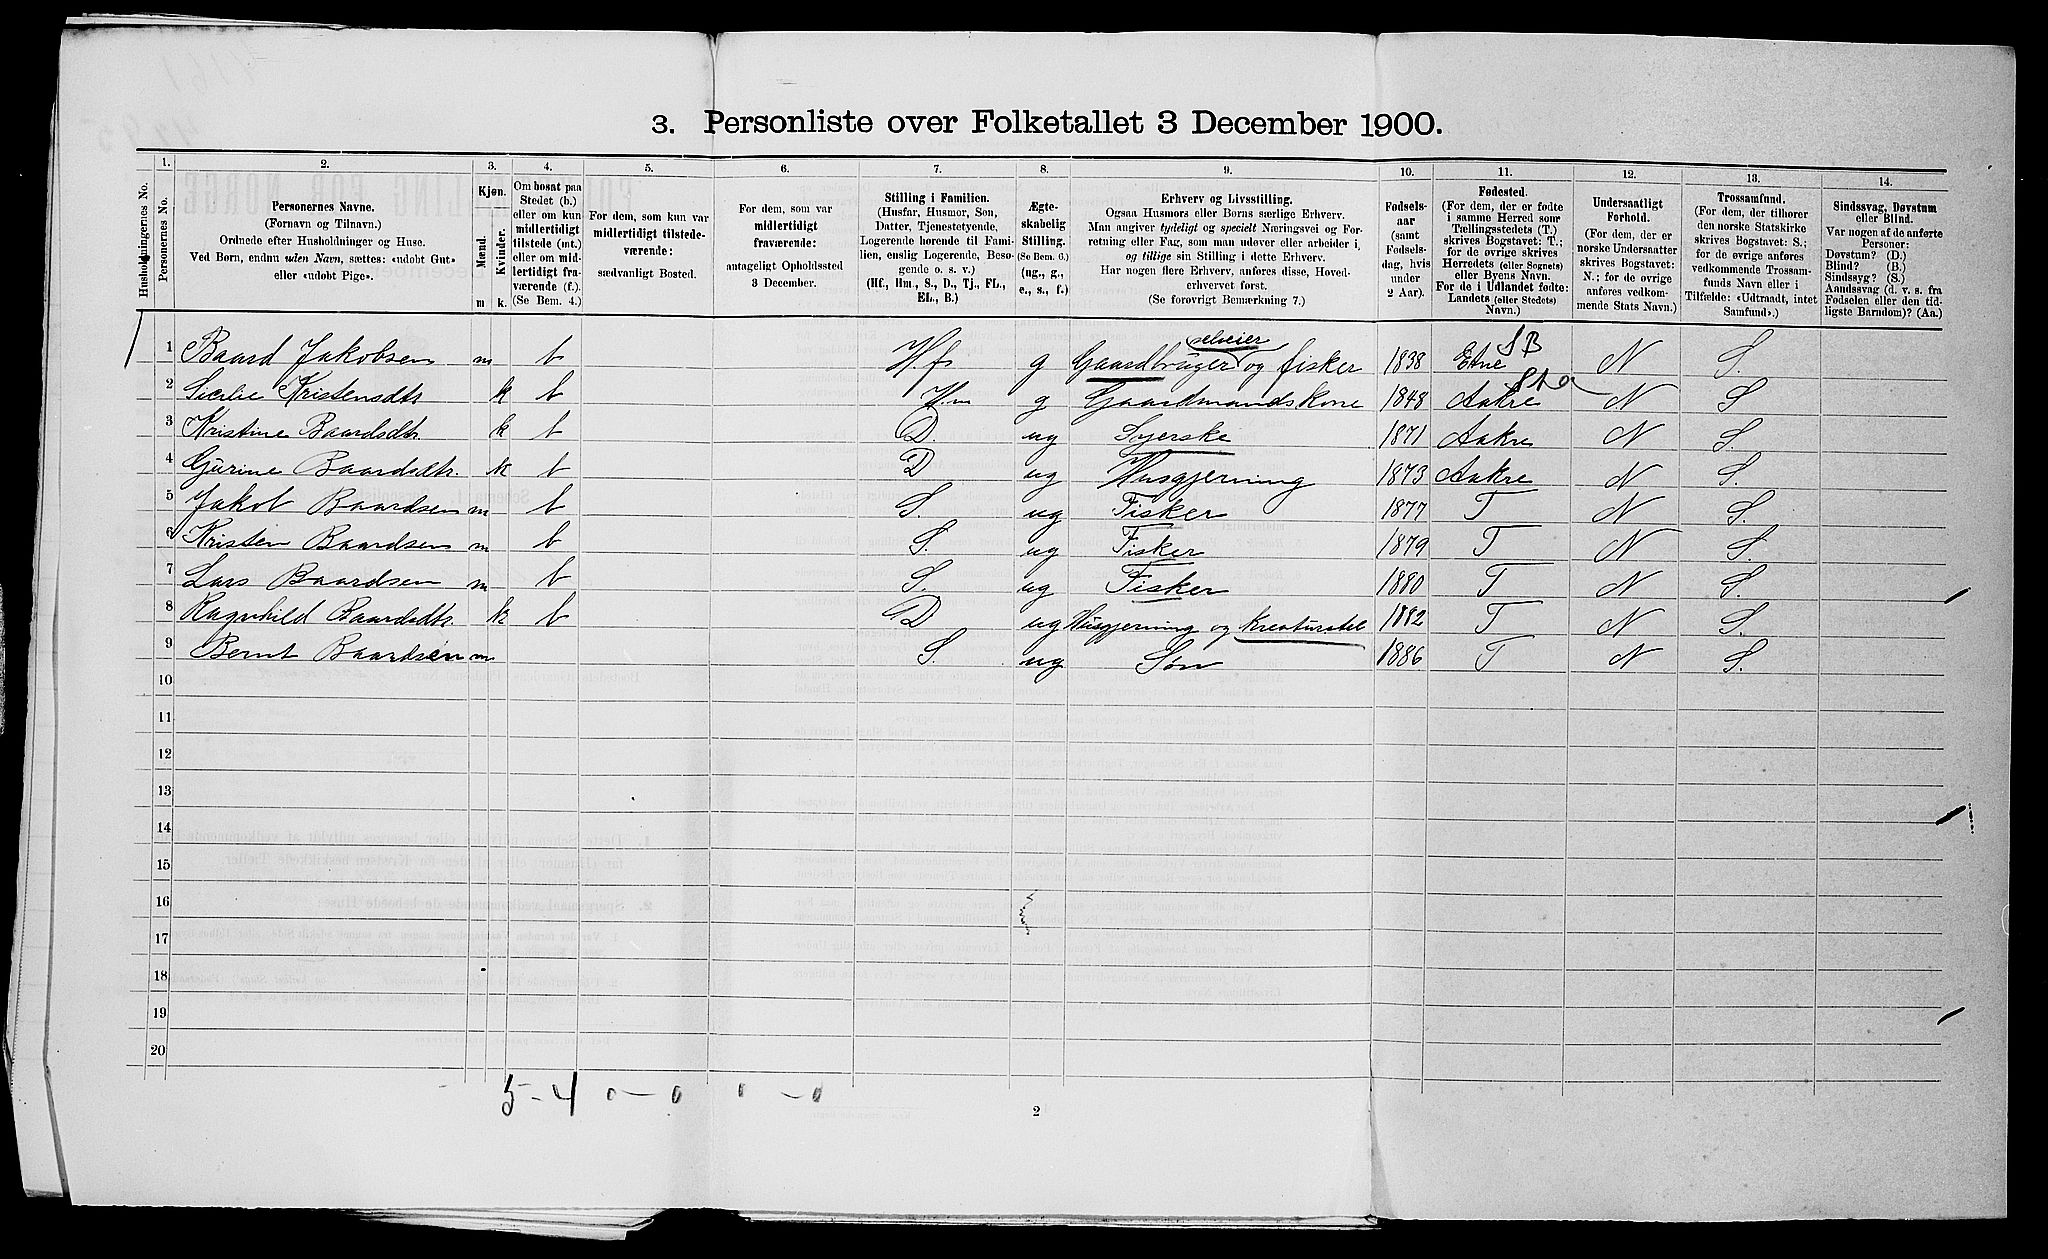 3. Personliste over Folketallet 3 December 1900.
1. 2. 3. 4. 5. 6. 7. 8. 9. 10. 11. 12. 13. 14.
Husholdningernes No.
Personernes No.
Personernes Navne.
(Fornavn og Tilnavn.)
Ordnede efter Husholdninger og Huse.
Ved Børn, endnu uden Navn, sættes: «udøbt Gut»
eller «udøbt Pige».
Kjøn.
Mænd.
Kvinder.
m k.
Om bosat paa
Stedet (b.)
eller om kun
midlertidigt
tilstede (mt.)
eller om mid-
lertidigt fra-
værende (f.).
(Se Bem. 4.)
For dem, som kun var
midlertidigt tilstede-
værende:
sædvanligt Bosted.
For dem, som var
midlertidigt
fraværende:
antageligt Opholdssted
3 December.
Stilling i Familien.
(Husfar, Husmor, Søn,
Datter, Tjenestetyende,
Logerende hørende til Fami-
lien, enslig Logerende, Besø-
gende o. s. v.)
(Hf., Hm., S., D., Tj., FL.,
EL., B.)
Ægte-
skabelig
Stilling.
(Se Bem. 6.)
(ug., g.,
e., s., f.)
Erhverv og Livsstilling.
Ogsaa Husmors eller Børns særlige Erhverv.
Man angiver tydeligt og specielt Næringsvei og For-
retning eller Fag, som man udøver eller arbeider i,
og tillige sin Stilling i dette Erhverv.
Har nogen flere Erhverv, anføres disse, Hoved-
erhvervet først.
(Se forøvrigt Bemærkning 7.)
Fødsels-
aar
(samt
Fødsels-
dag, hvis
under
2 Aar).
Fødested.
(For dem, der er fødte
i samme Herred som
Tællingsstedets (T.)
skrives Bogstavet: T.;
for de øvrige skrives
Herredets (eller Sognets)
eller Byens Navn.
For de i Udlandet fødte:
Landets (eller Stedets)
Navn.)
Undersaatligt
Forhold.
(For dem, der er
norske Undersaatter
skrives Bogstavet:
N.; for de øvrige
anføres vedkom-
mende Stats Navn.)
Trossamfund.
(For dem, der tilhører
den norske Statskirke
skrives Bogstavet: S.;
for de øvrige anføres
vedkommende Trossam-
funds Navn eller i
Tilfælde: «Udtraadt, intet
Samfund».)
Sindssvag, Døvstum
eller Blind.
Var nogen af de anførte
Personer:
Døvstum? (D.)
Blind? (B.)
Sindssyg? (S.)
Aandssvag (d. v. s. fra
Fødselen eller den tid-
ligste Barndom)? (Aa.)
selveier SB
1 Baard Jakobsen m b Hf g Gaardbruger og fisker 1838 Etne N S.
2 Kristensdtr k b Hm g Gaardmandskone 1848 Aakre N S
3 Kristine Baardsdtr. k b D. ug Syerske 1871 Aakre N S.
4 Gurine Baardsdtr. k b D ug Husgjerning 1873 Aakre N S.
5 Jakob Baardsen m b S. ug Fisker 1877 T N S.
6 Kristen Baardsen m b S. ug Fisker 1879 T N S.
7 Lars Baardsen m b S. ug Fisker 1880 T N S.
8 Ragnhild Baardsdtr. k b D ug Husgjerning og Kreaturstel 1882 T N S.
9 Bernt Baardsen m S. ug Søn 1886 T N S.
10
11
12
13
14
15
16
17
18
19
20
5 - 4 0 - 0 0 - 0
2